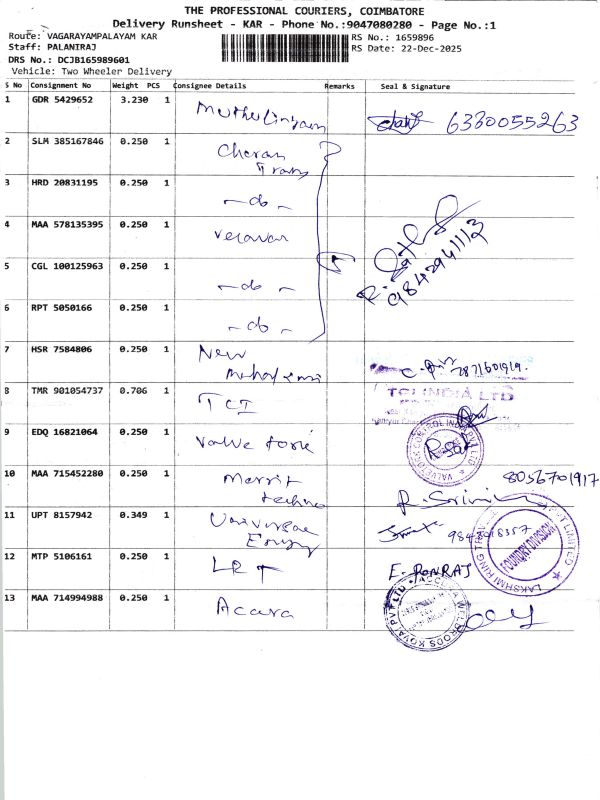 THE PROFESSIONAL COURIERS, COIMBATORE
Delivery Runsheet - KAR - Phone No.:9047080280 - Page No.:1
Route: VAGARAYAMPALAYAM KAR
RS No.: 1659896
Staff: PALANIRAJ
RS Date: 22-Dec-2025
DRS No.: DCJB165989601
Vehicle: Two Wheeler Delivery
S No Consignment No Weight PCS Consignee Details Remarks Seal & Signature
1 GDR 5429652 3.230 1 6380055263
2 SLM 385167846 0.250 1 Cheran
Trans
3 HRD 20831195 0.250 1 - do -
4 MAA 578135395 0.250 1 Velavan
9842941113
5 CGL 100125963 0.250 1 - do -
6 RPT 5050166 0.250 1 - do -
7 HSR 7584806 0.250 1 New
8 TMR 901054737 0.706 1 TCI TCI INDIA LTD
9 EDQ 16821064 0.250 1 Valve
10 MAA 715452280 0.250 1 Merrit
techno
8056701917
11 UPT 8157942 0.349 1
LAKSHMI RING TRAVELLERS
FOUNDRY DIVISION
12 MTP 5106161 0.250 1 LRT E. PONRAJ
13 MAA 714994988 0.250 1 Acara